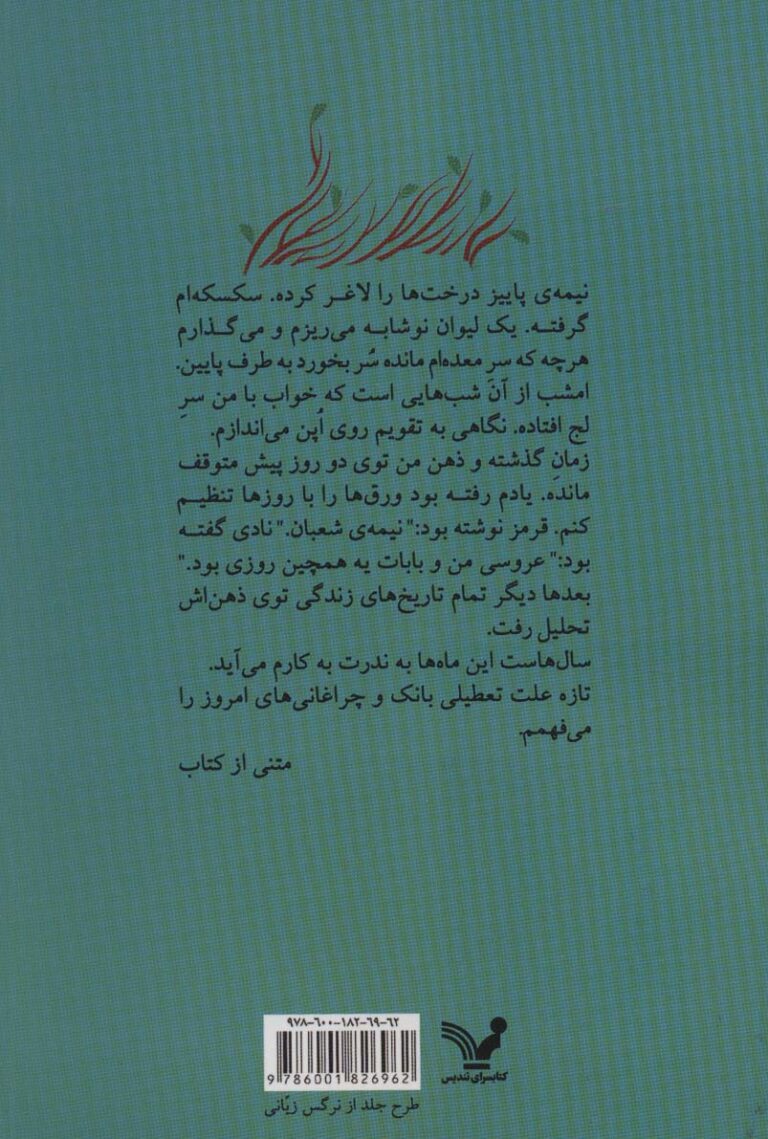 نیمه‌ی پاییز درخت‌ها را لاغر کرده. سکسکه‌ام
گرفته. یک لیوان نوشابه می‌ریزم و می‌گذارم
هرچه که سرِ معده‌ام مانده سُر بخورد به طرف پایین.
امشب از آن شب‌هایی است که خواب با من سرِ
لج افتاده. نگاهی به تقویم روی اُپن می‌اندازم.
زمان گذشته و ذهنِ من توی دو روز پیش متوقف
مانده. یادم رفته بود ورق‌ها را با روزها تنظیم
کنم. قرمز نوشته بود:" نیمه‌ی شعبان." نادی گفته
بود:" عروسی من و بابات یه همچین روزی بود."
بعدها دیگر تمام تاریخ‌های زندگی توی ذهن‌اش
تحلیل رفت.
سال‌هاست این ماه‌ها به ندرت به کارم می‌آید.
تازه علت تعطیلی بانک و چراغانی‌های امروز را
می‌فهمم.
متنی از کتاب
۹۷۸-۶۰۰-۱۸۲-۶۹-۶۲
9 786001 826962
کتابسرای تندیس
طرح جلد از نرگس زیّانی